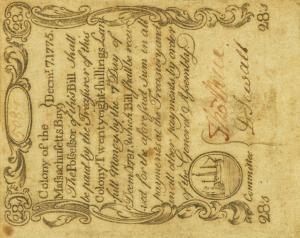 28s 28s
Colony of the
Massachusetts Bay Decmr. 7, 1775.
The Possessor of this Bill shall
be paid by the Treasurer of this
Colony Twenty eight Shillings Law
full Money by the 7th Day of
Decem. 1781 which Bill shall be
ed for the aforesaid sum in all
payments at the Treasury and
in all other payments by order
of the General Assembly.
Committee
28s 28s